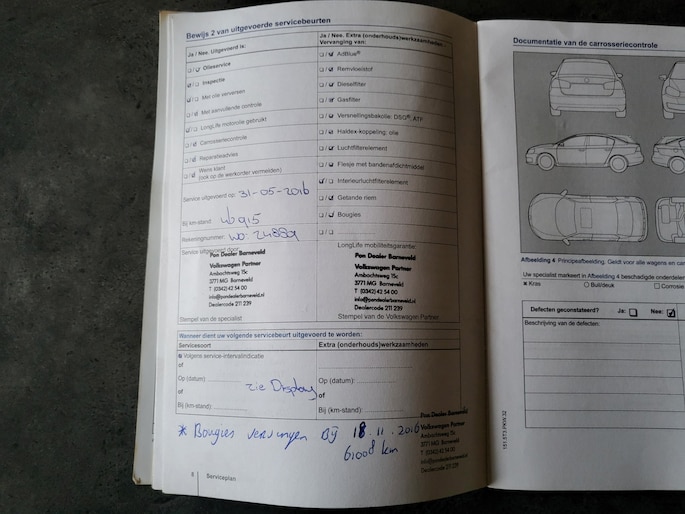 Bewijs 2 van uitgevoerde servicebeurten
Ja / Nee. Uitgevoerd is:
Olieservice
Inspectie
Met olie verversen
Met aanvullende controle
LongLife motorolie gebruikt
Carrosseriecontrole
Reparatieadvies
Wens klant
(ook op de werkorder vermelden)
Service uitgevoerd op: 31-05-2016
Bij km-stand: 46915
Rekeningnummer: wo: 24889
Service uitgevoerd door:
Pon Dealer Barneveld
Volkswagen Partner
Ambachtsweg 15c
3771 MG Barneveld
T (0342) 42 54 00
info@pondealerbarneveld.nl
Dealercode 211 239
Stempel van de specialist
Ja / Nee. Extra (onderhouds)werkzaamheden.
Vervanging van:
AdBlue®
Remvloeistof
Dieselfilter
Gasfilter
Versnellingsbakolie: DSG®, ATF
Haldex-koppeling: olie
Luchtfilterelement
Flesje met bandenafdichtmiddel
Interieurluchtfilterelement
Getande riem
Bougies
LongLife mobiliteitsgarantie
Pon Dealer Barneveld
Volkswagen Partner
Ambachtsweg 15c
3771 MG Barneveld
T (0342) 42 54 00
info@pondealerbarneveld.nl
Dealercode 211 239
Stempel van de Volkswagen Partner
Wanneer dient uw volgende servicebeurt uitgevoerd te worden:
Servicesoort
Volgens service-intervalindicatie
of
Op (datum):
zie Display
of
Bij (km-stand):
Extra (onderhouds)werkzaamheden
Op (datum):
of
Bij (km-stand):
* Bougies vervangen Bij 18.11.2016
61008 km
Pon Dealer Barneveld
Volkswagen Partner
Ambachtsweg 15c
3771 MG Barneveld
T (0342) 42 54 00
info@pondealerbarneveld.nl
Dealercode 211 239
8 Serviceplan
Documentatie van de carrosseriecontrole
Afbeelding 4 Principeafbeelding. Geldt voor alle wagens en
Uw specialist markeert in Afbeelding 4 beschadigde onderdelen
Kras
Buil/deuk
Corrosie
Defecten geconstateerd? Ja: Nee:
Beschrijving van de defecten:
161.5T3.PKW.32